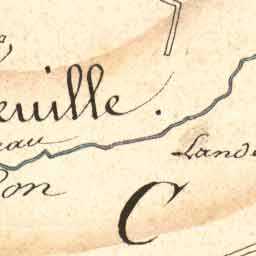 euille.
eau
Land
on
C